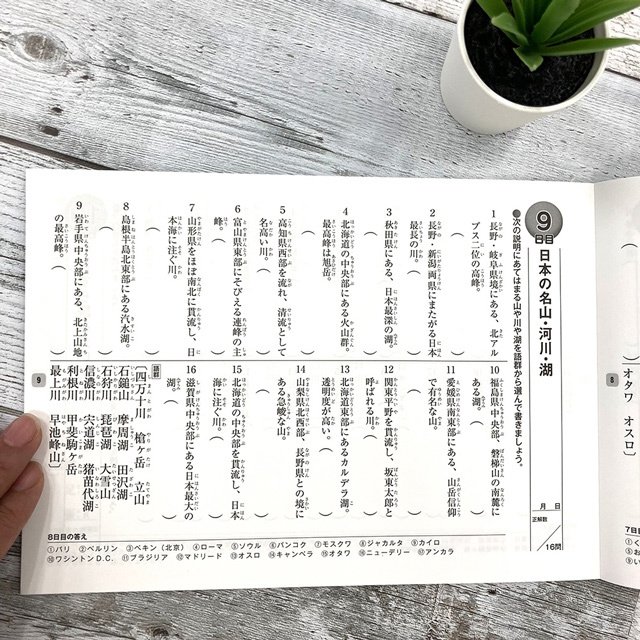 9日目 日本の名山・河川・湖
●次の説明にあてはまる山や川や湖を語群から選んで書きましょう。
月 日
正解数
/16問
1 長野・岐阜県境にある、北アル
プス二位の高峰。
( )
2 長野・新潟両県にまたがる日本
最長の川。
( )
3 秋田県にある、日本最深の湖。
( )
4 北海道の中央部にある火山群。
最高峰は旭岳。
( )
5 高知県西部を流れ、清流として
名高い川。
( )
6 富山県東部にそびえる連峰の主
峰。
( )
7 山形県をほぼ南北に貫流し、日
本海に注ぐ川。
( )
8 島根半島北東部にある汽水湖。
( )
9 岩手県中央部にある、北上山地
の最高峰。
( )
10 福島県中央部、磐梯山の南麓に
ある湖。
( )
11 愛媛県南東部にある、山岳信仰
で有名な山。
( )
12 関東平野を貫流し、坂東太郎と
呼ばれる川。
( )
13 北海道東部にあるカルデラ湖。
透明度が高い。
( )
14 山梨県北西部、長野県との境に
ある急峻な山。
( )
15 北海道の中央部を貫流し、日本
海に注ぐ川。
( )
16 滋賀県中央部にある日本最大の
湖。
( )
語群
[四万十川 槍ヶ岳 立山
石鎚山 摩周湖 田沢湖
石狩川 琵琶湖 大雪山
信濃川 宍道湖 猪苗代湖
利根川 甲斐駒ヶ岳
最上川 早池峰山]
8日目の答え
①パリ ②ベルリン ③ペキン(北京) ④ローマ ⑤ソウル ⑥バンコク ⑦モスクワ ⑧ジャカルタ ⑨カイロ
⑩ワシントンD.C. ⑪ブラジリア ⑫マドリード ⑬オスロ ⑭キャンベラ ⑮オタワ ⑯ニューデリー ⑰アンカラ
9
8
オタワ オスロ]
7日目
①く
⑤お
⑨い